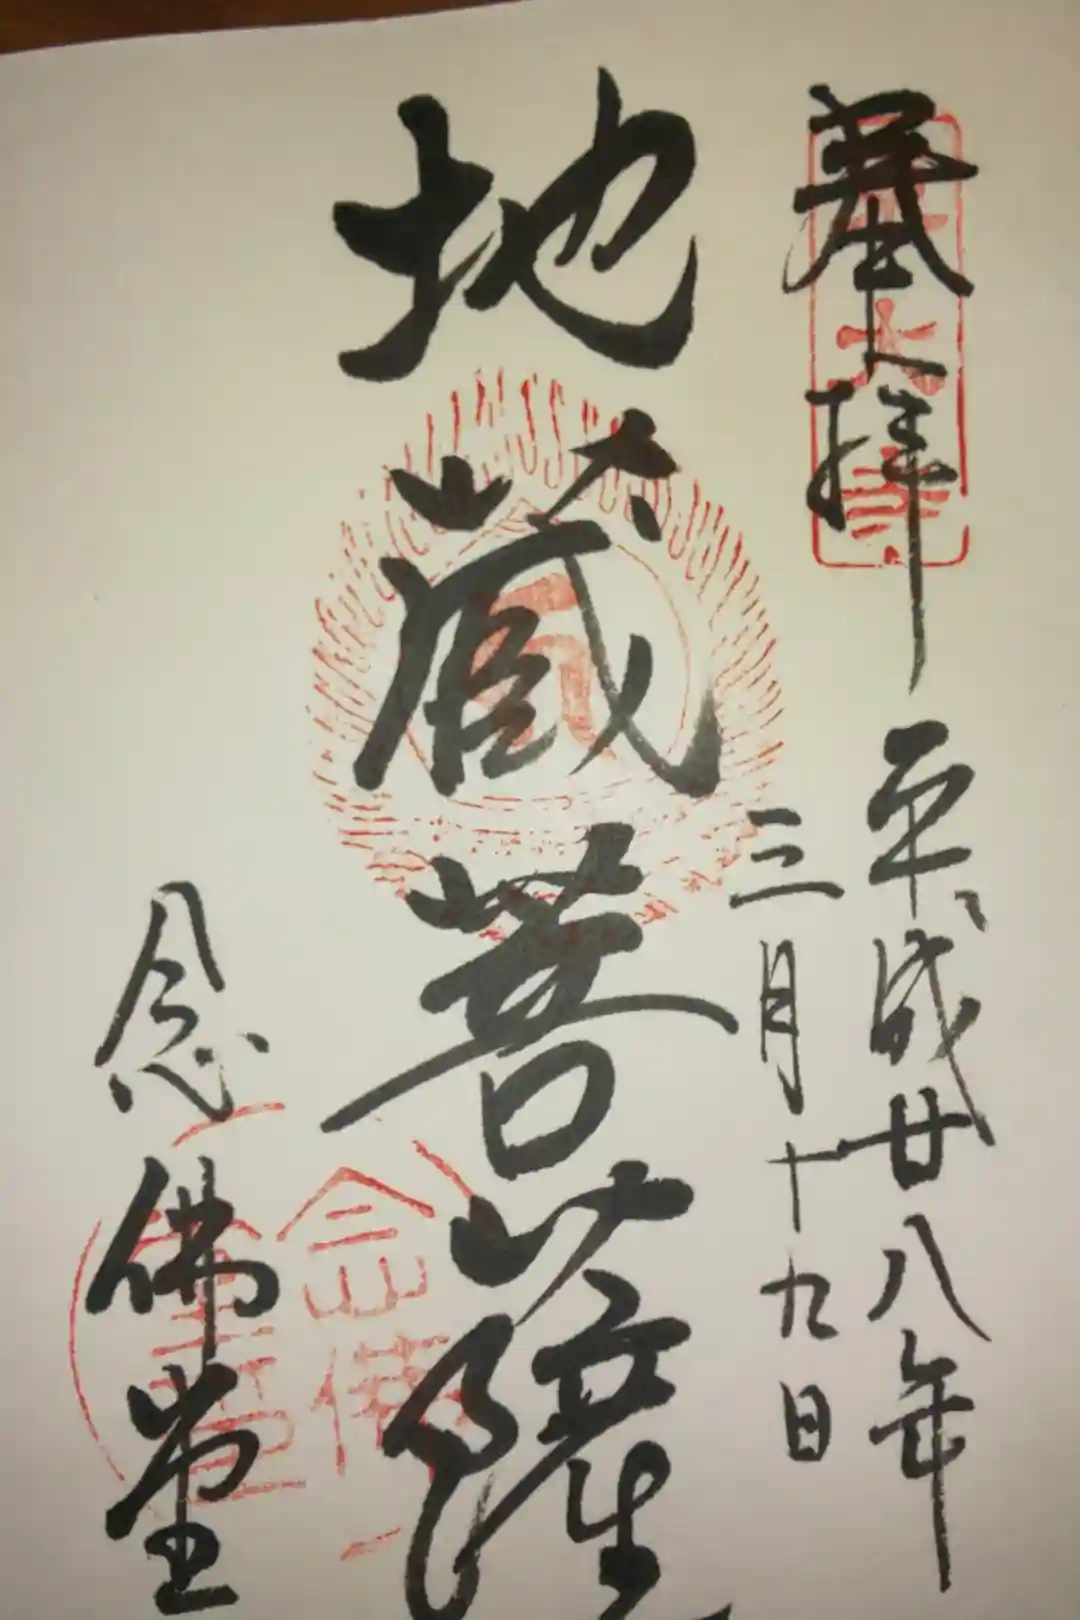 奉拝
平成廿八年
三月十九日
地蔵菩薩
念佛堂
念佛